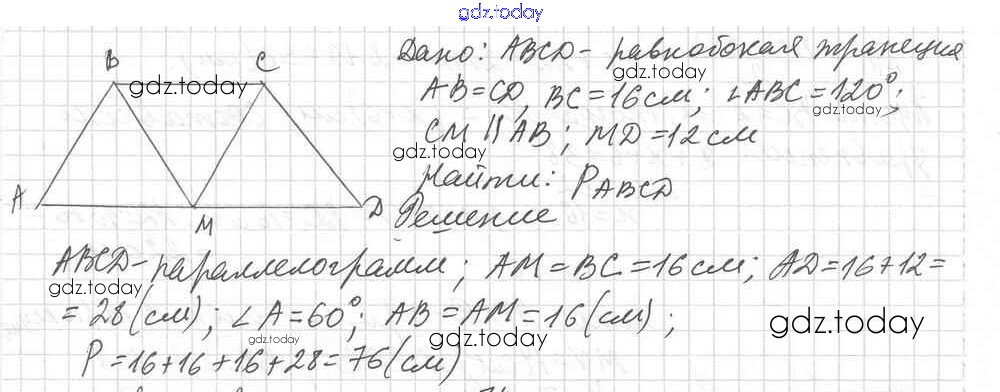 gdz.today
Дано: ABCD - равнобокая трапеция
gdz.today
AB=CD, BC=16см; ∠ABC=120°;
gdz.today
CM ∥ AB; MD=12см
gdz.today
Найти: P ABCD
Решение
B
C
gdz.today
A
M
D
ABCD-параллелограмм; AM=BC=16см; AD=16+12=
gdz.today
=28(см); ∠A=60°; AB=AM=16(см);
gdz.today
gdz.today
P=16+16+16+28=76(см)